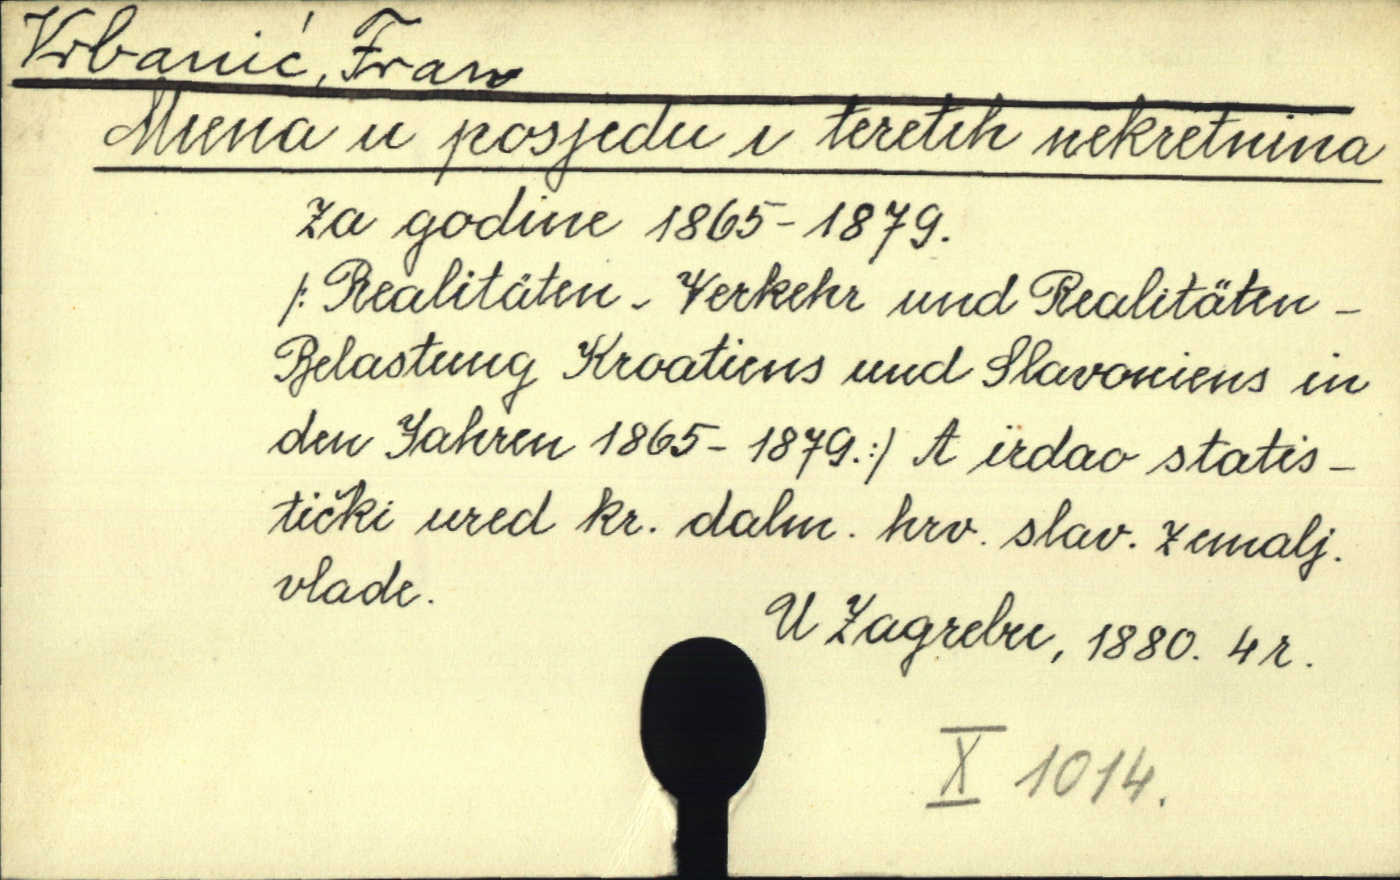 Vrbanić, Fran
Miena u posjedu i teretih nekretnina
za godine 1865-1879.
/: Realitäten - Verkehr und Realitäten -
Belastung Kroatiens und Slavoniens in
den Jahren 1865- 1879.:/ A izdao statis-
tički ured kr. dalm. hrv. slav. zemalj.
vlade.
U Zagrebu, 1880. 4 r.
X 1014.